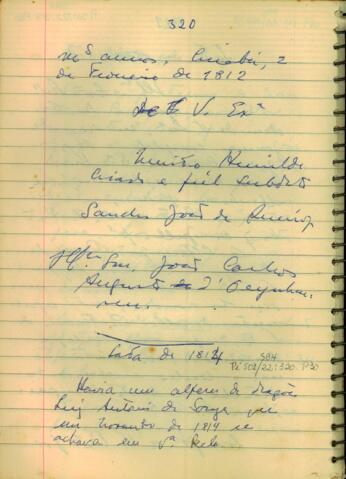 320
m.s annos, Cuiabá, 2
de Fevereiro de 1812
De V. Ex.ª
Muito Humilde
Criado e fiel subdito
Sancho João de Queiroz
Ill.mo Snr. João Carlos
Augusto d'Oeynhau-
sen.
Casa de 1814
SB4
Pi 502/22:320. P30
Havia um alferes de dragões
Luiz Antonio de Souza que
em Novembro de 1814 se
achava em V.ª Bela